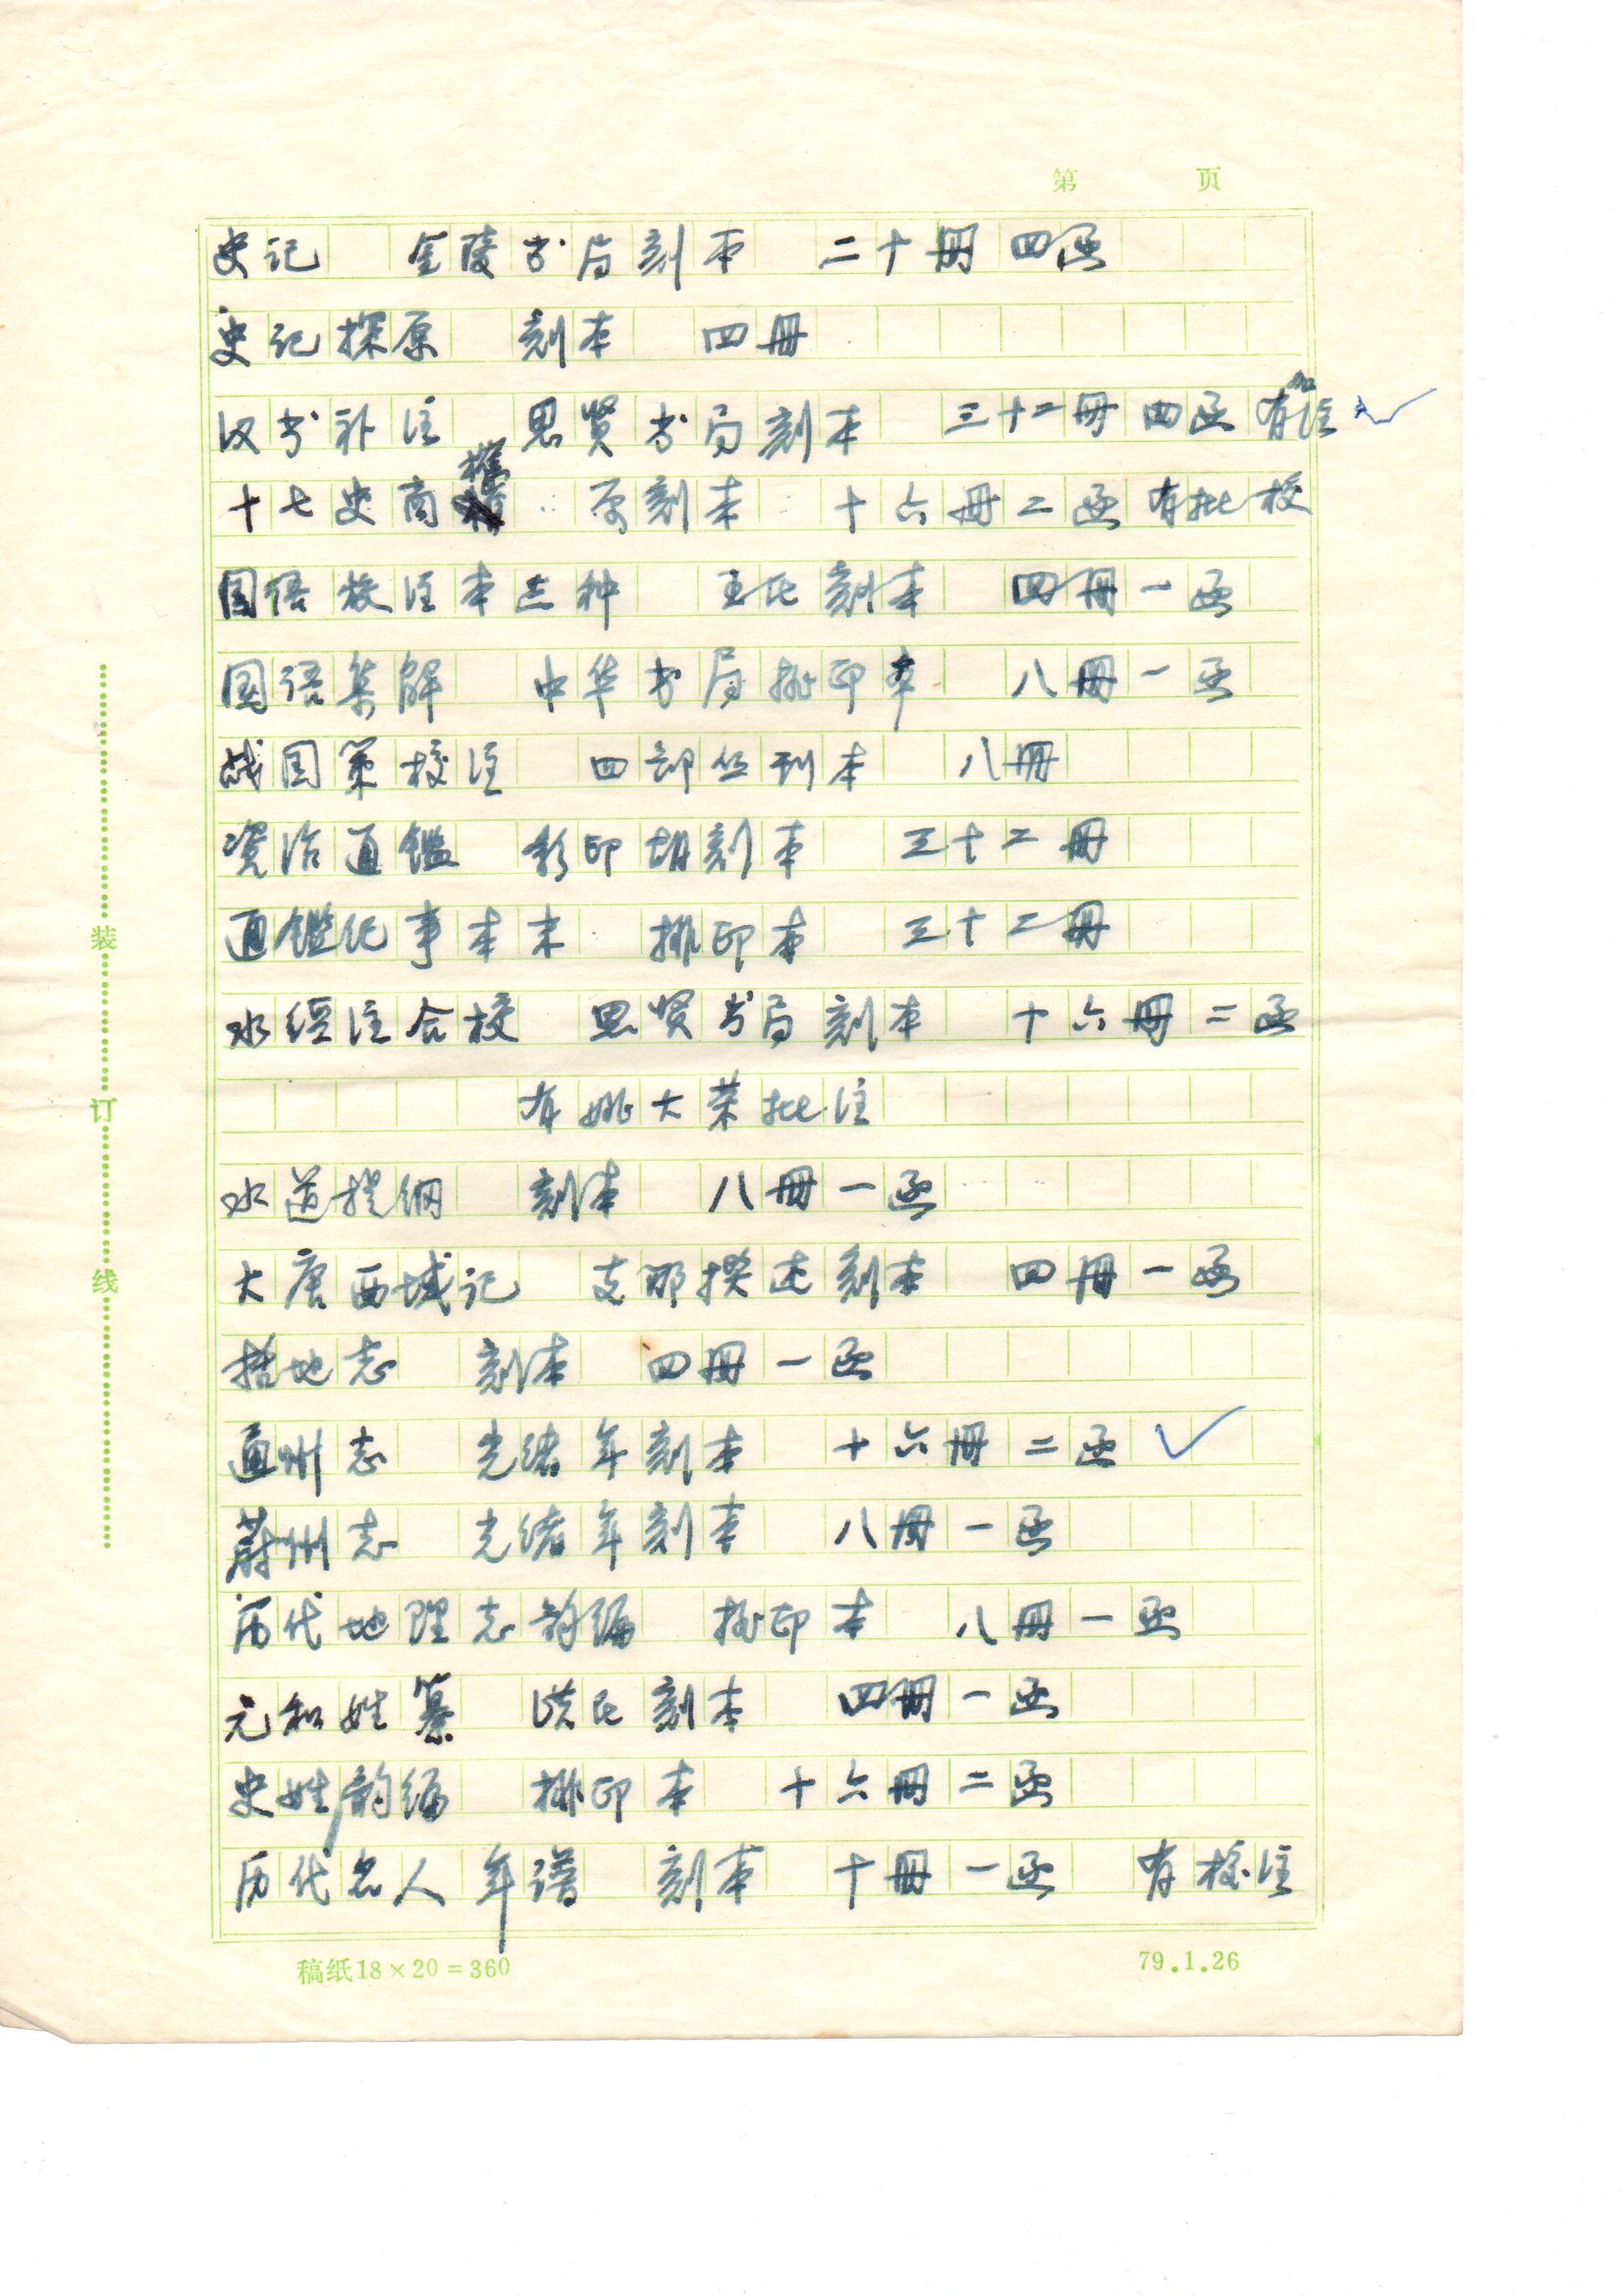 第 页
史记 金陵书局刻本 二十册 四函
史记探原 刻本 四册
汉书补注 思贤书局刻本 三十二册 四函 有加注
十七史商榷 原刻本 十六册 二函 有批校
国语校注本三种 王氏刻本 四册 一函
国语集解 中华书局排印本 八册 一函
战国策校注 四部丛刊本 八册
资治通鉴 影印胡刻本 三十二册
通鉴纪事本末 排印本 三十二册
水经注合校 思贤书局刻本 十六册 二函
有姚大荣批注
水道提纲 刻本 八册 一函
大唐西域记 支那撰述刻本 四册 一函
括地志 刻本 四册 一函
通州志 光绪年刻本 十六册 二函
蔚州志 光绪年刻本 八册 一函
历代地理志韵编 排印本 八册 一函
元和姓纂 洪氏刻本 四册 一函
史姓韵编 排印本 十六册 二函
历代名人年谱 刻本 十册 一函 有校注
装
订
线
稿纸18×20=360 79.1.26